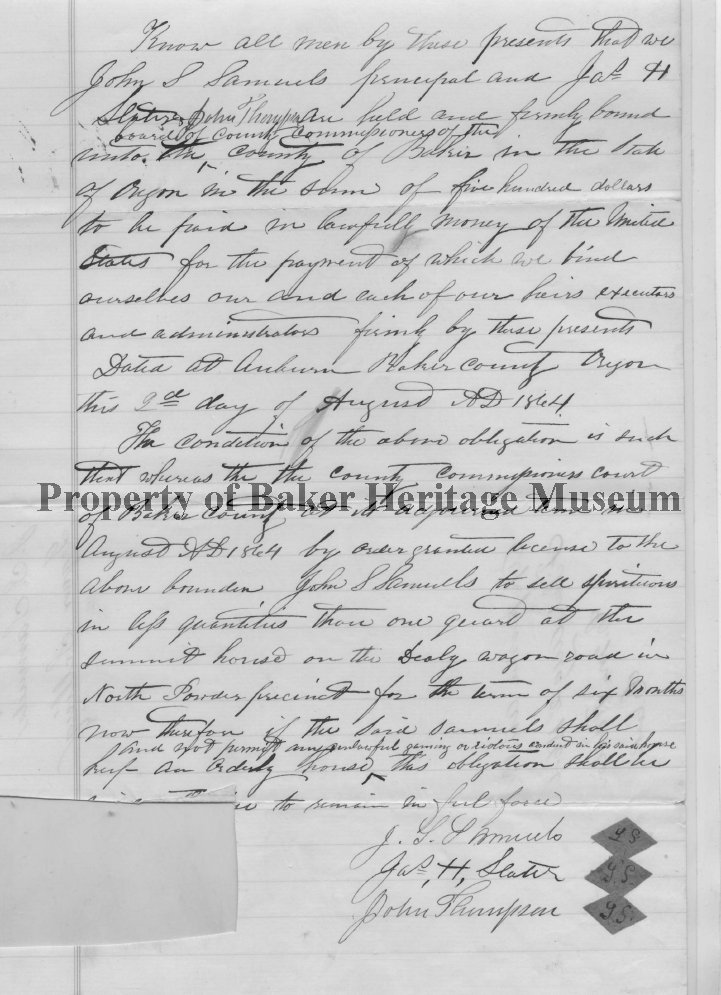 Know all men by these presents that we
John S Samuels principal and Jas H
Slater & John Thompson are held and firmly bound
board of County Commissioners of the
unto the county of Baker in the State
of Oregon in the sum of five hundred dollars
to be paid in lawfull money of the United
States for the payment of which we bind
ourselves our and each of our heirs executors
and administrators firmly by these presents
Dated at Auburn Baker county Oregon
this 2nd day of August AD 1864
The condition of the above obligation is such
that whereas the the county commissioners court
Property of Baker Heritage Museum
of Baker County at its adjourned term in
August AD 1864 by order granted license to the
above bounden John S Samuels to sell spirituous
in less quantities than one quart at the
summit house on the Dealy wagon road in
North Powder precinct for the term of six months
now therefore if the said Samuels shall
and not permit any unlawful gaming or riotous conduct in his said house
keep an orderly house this obligation shall be
to remain in full force
J. S. Samuels
Jas, H, Slater
John Thompson